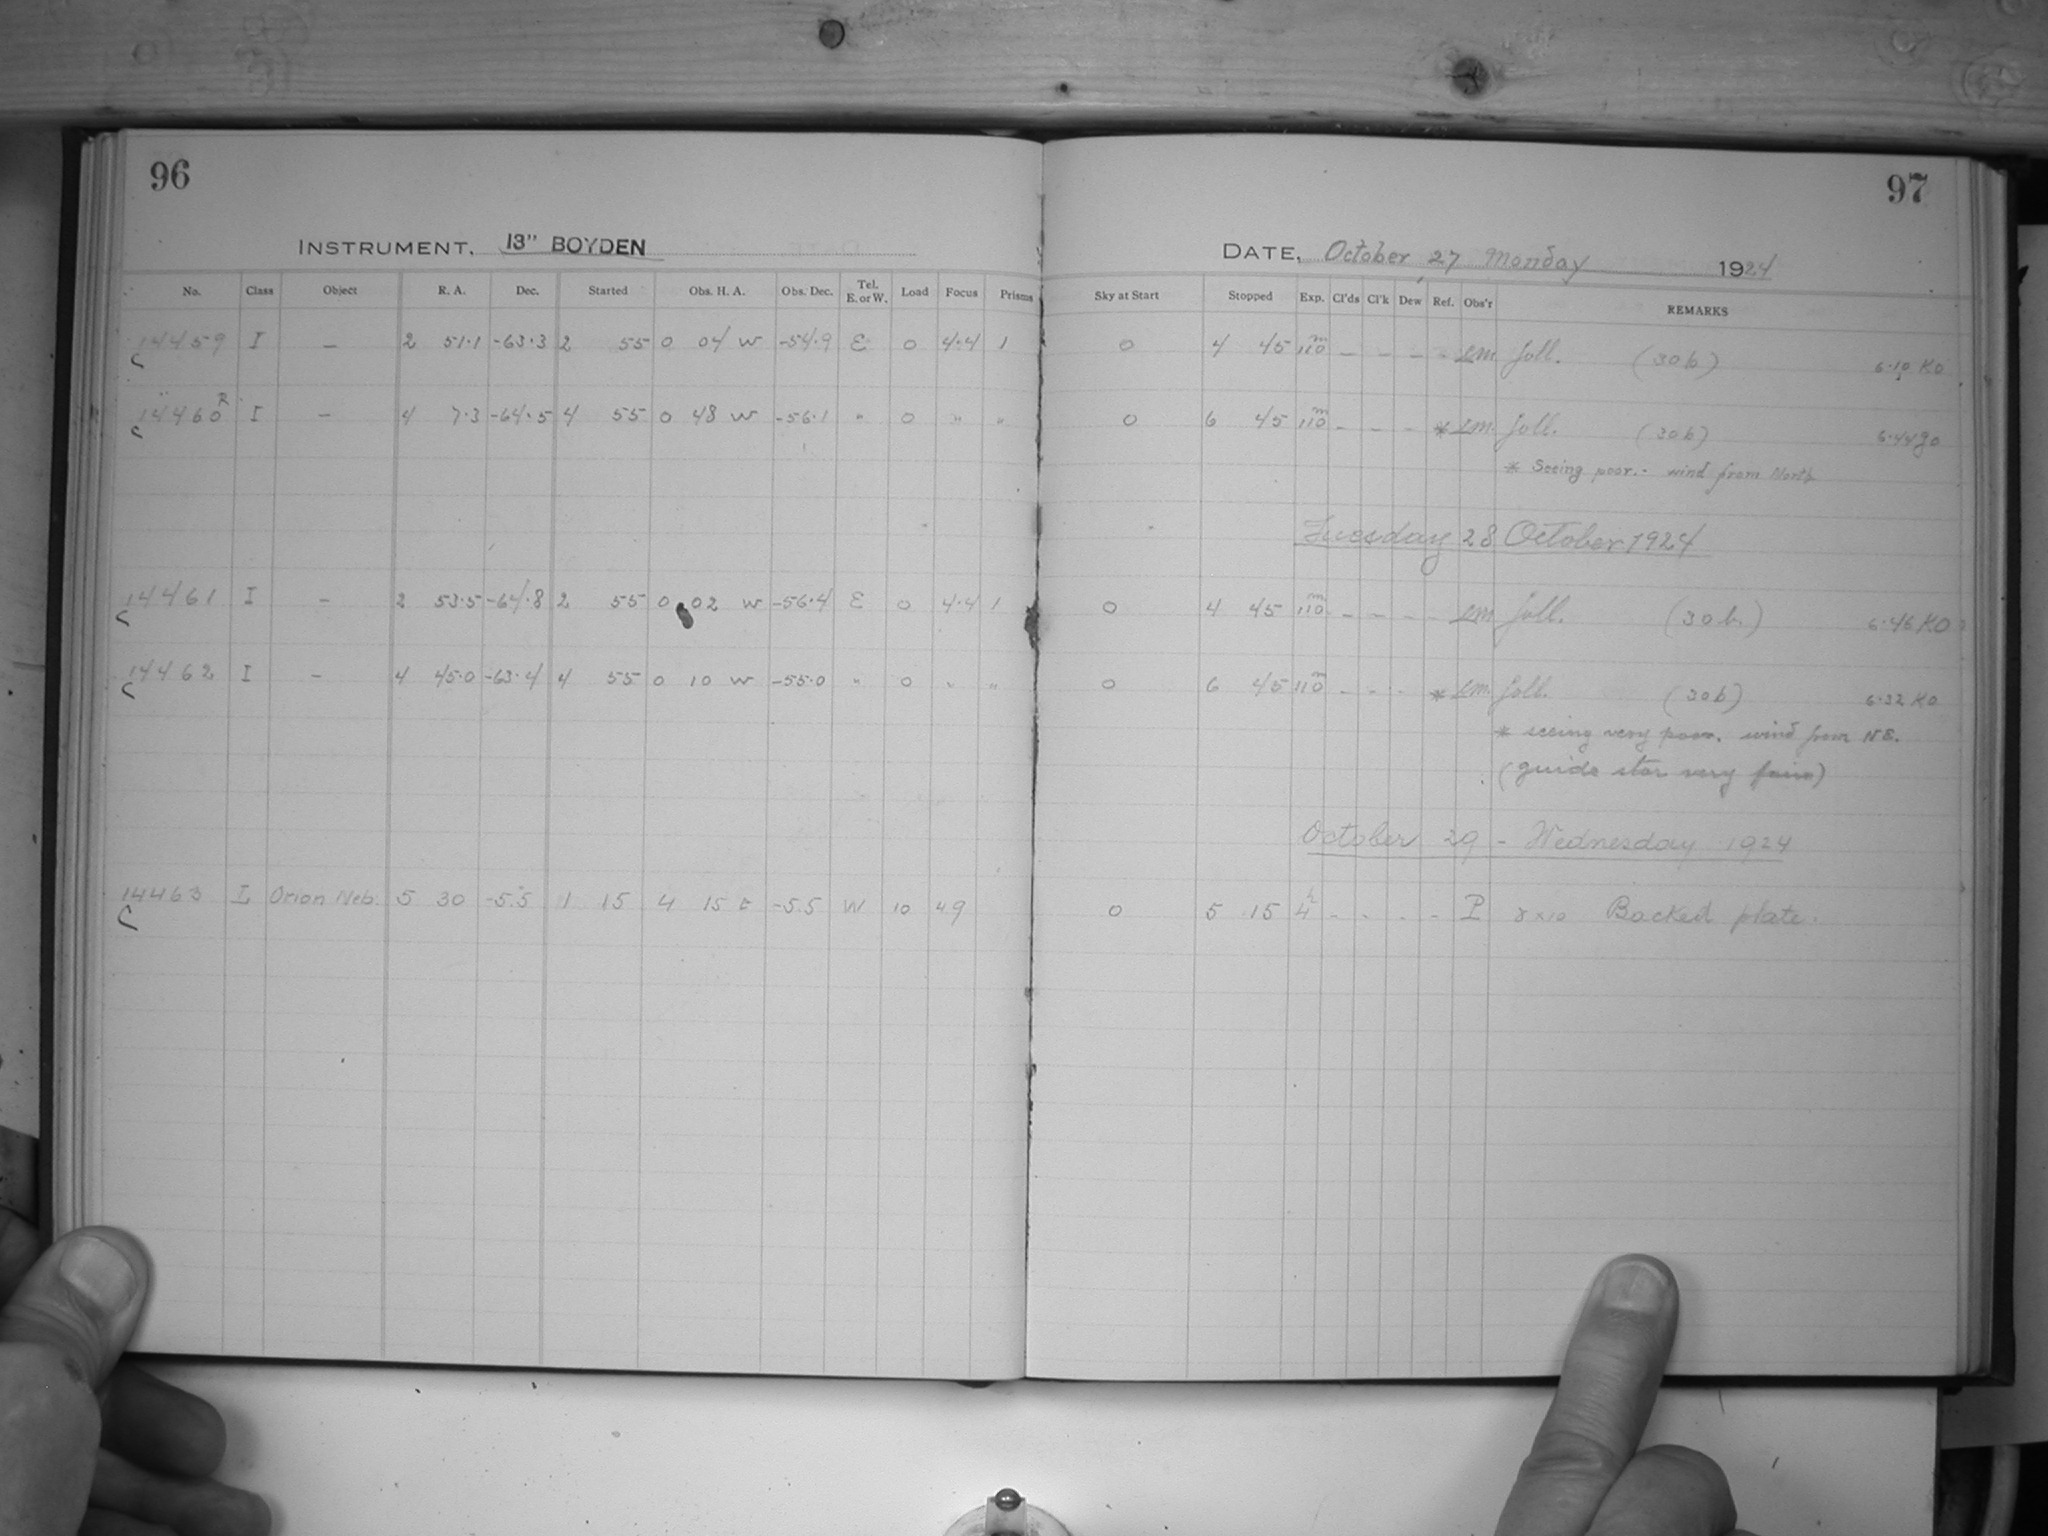 96
INSTRUMENT. 13" BOYDEN
No. Class Object R. A. Dec. Started Obs. H. A. Obs. Dec. Tel. E. or W. Load Focus Prisms
14459 I — 2 51.1 -63.3 2 55 0 04 W -54.9 E 0 4.4 1
14460 R I — 4 7.3 -64.5 4 55 0 48 W -56.1 " 0 " "
14461 I — 2 53.5 -64.8 2 55 0 02 W -56.4 E 0 4.4 1
14462 I — 4 45.0 -63.4 4 55 0 10 W -55.0 " 0 " "
14463 I Orion Neb. 5 30 -5.5 1 15 4 15 E -5.5 W 10 4.9
97
DATE, October 27 Monday 1924
Sky at Start Stopped Exp. Cl'ds Cl'k Dew Ref. Obs'r REMARKS
0 4 45 110m — — — - (30b) 6.10 KO
0 6 45 110m - - - * (30b) 6.44
* Seeing poor. - wind from North
Tuesday 28 October 1924
0 4 45 110m — — - - (30b.) 6.46 KO
0 6 45 110m - - - * (30b) 6.32 KO
* seeing very poor. wind from NE.
(guide star very)
October 29 - Wednesday 1924
0 5 15 4½ - - - - P 8x10 Backed plate.